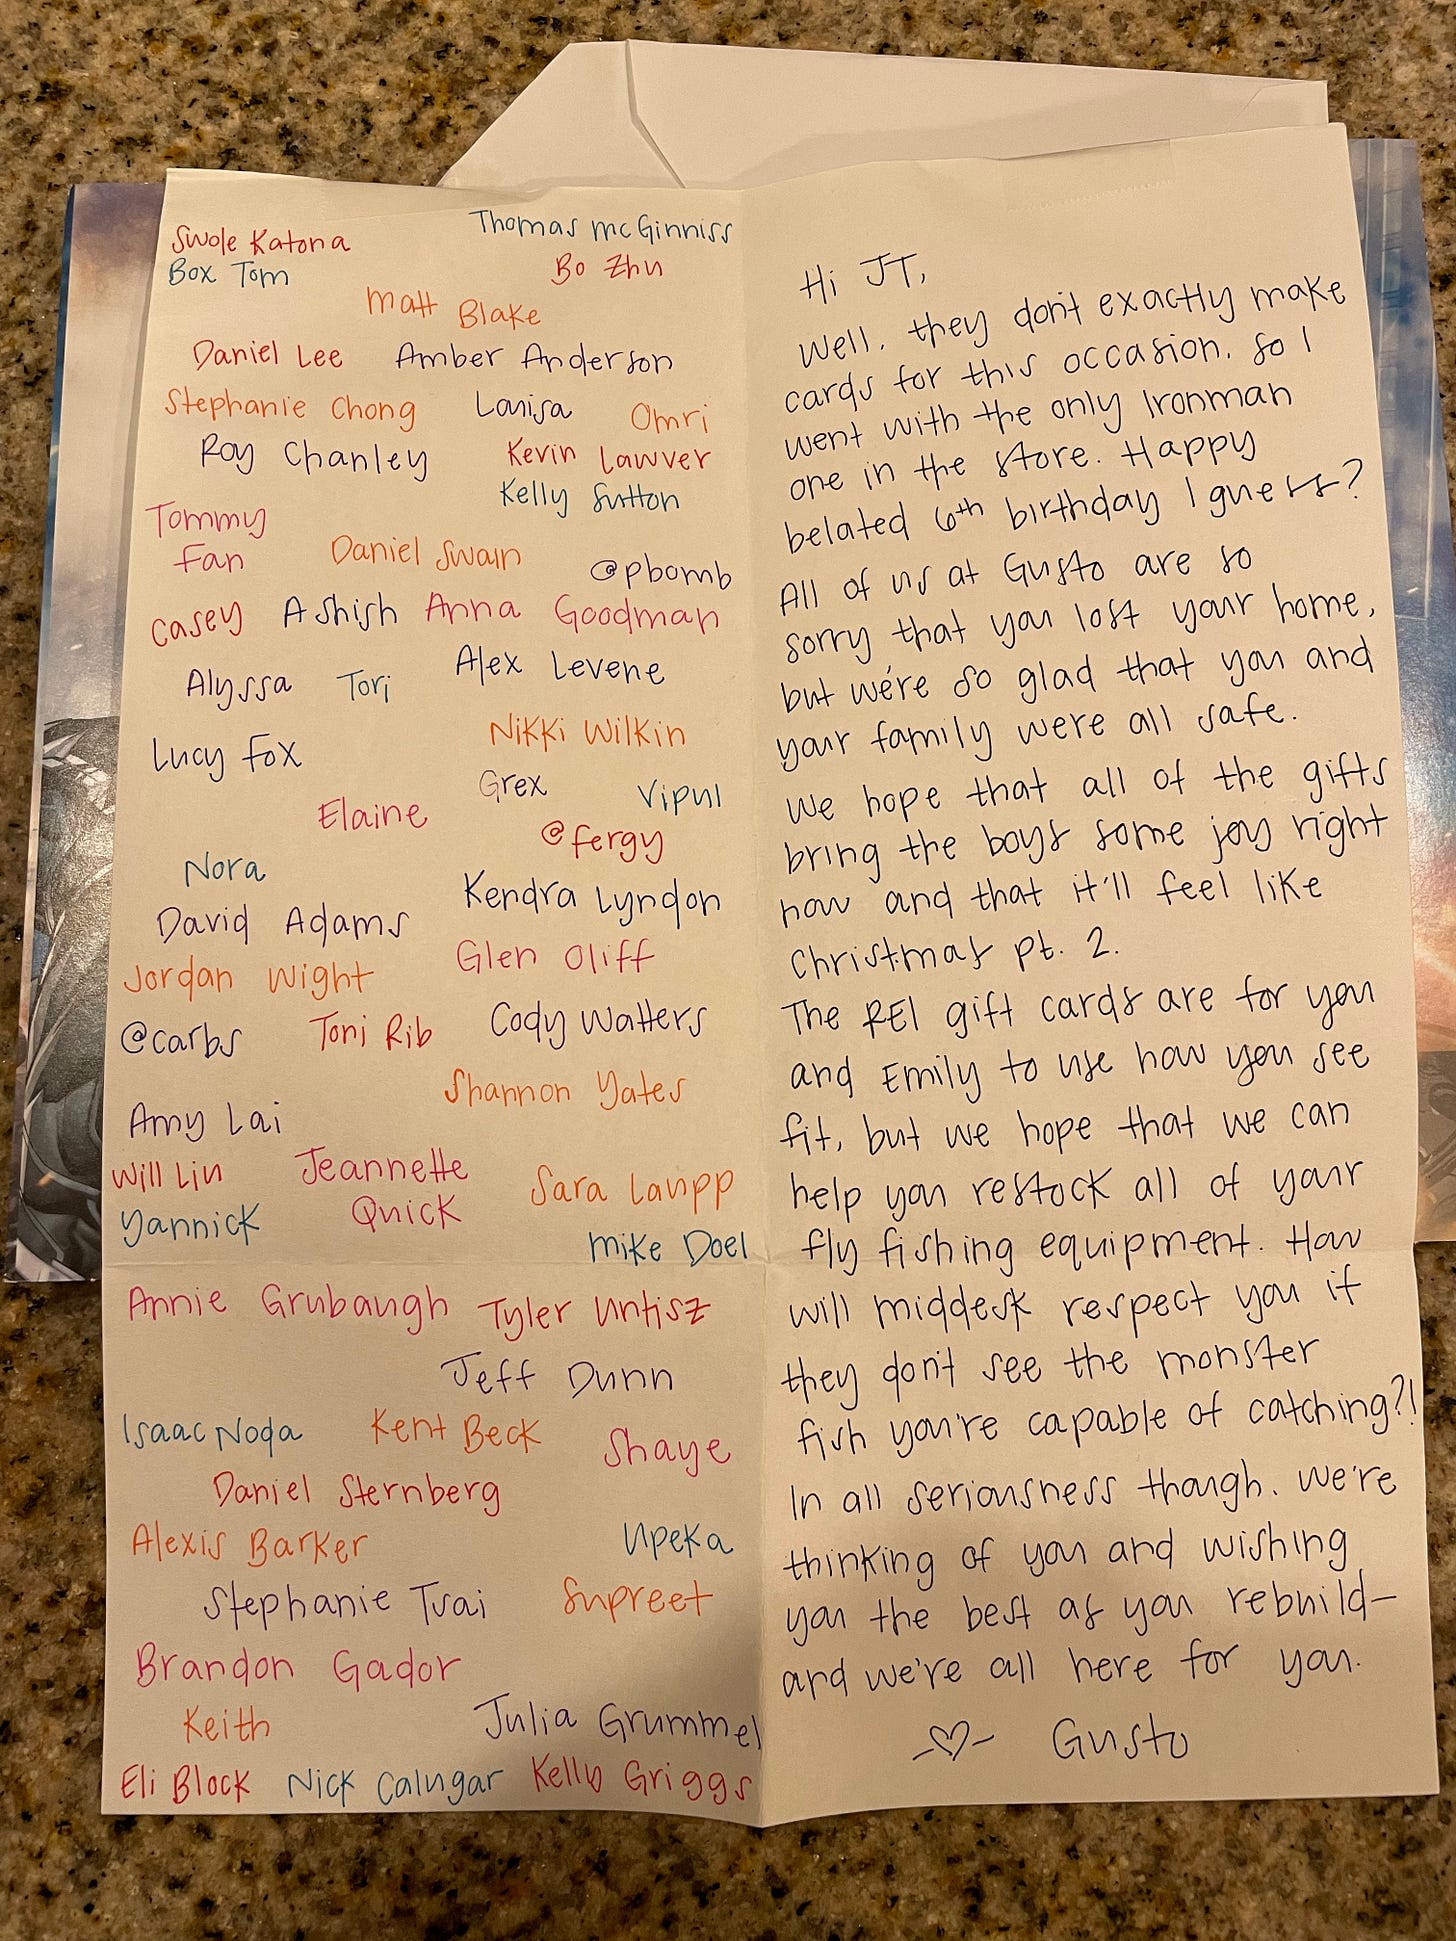 Swole Katona
Thomas McGinniss
Box Tom
Bo Zhu
Matt Blake
Daniel Lee
Amber Anderson
Stephanie Chong
Louisa
Omri
Roy Chanley
Kevin Lawver
Kelly Sutton
Tommy
Fan
Daniel Swain
@pbomb
Casey
Ashish
Anna Goodman
Alyssa
Tori
Alex Levene
Nikki Wilkin
Lucy Fox
Grex
Vipul
Elaine
@fergy
Nora
Kendra Lyndon
David Adams
Glen Oliff
Jordan Wight
@carbs
Toni Rib
Cody Watters
Shannon Yates
Amy Lai
Will Liu
Jeannette
Quick
Sara Laupp
Yannick
Mike Doel
Annie Grubaugh
Tyler Untisz
Jeff Dunn
Isaac Noda
Kent Beck
Shaye
Daniel Sternberg
Alexis Barker
Upeka
Stephanie Tsai
Supreet
Brandon Gador
Keith
Julia Grummel
Eli Block
Nick Calugar
Kelly Griggs
Hi JT,
Well, they don't exactly make
cards for this occasion, so I
went with the only Ironman
one in the store. Happy
belated 6th birthday I guess?
All of us at Gusto are so
sorry that you lost your home,
but we're so glad that you and
your family were all safe.
We hope that all of the gifts
bring the boys some joy right
now and that it'll feel like
Christmas pt. 2.
The REI gift cards are for you
and Emily to use how you see
fit, but we hope that we can
help you restock all of your
fly fishing equipment. How
will middesk respect you if
they don't see the monster
fish you're capable of catching?!
In all seriousness though, we're
thinking of you and wishing
you the best as you rebuild—
and we're all here for you.
Gusto